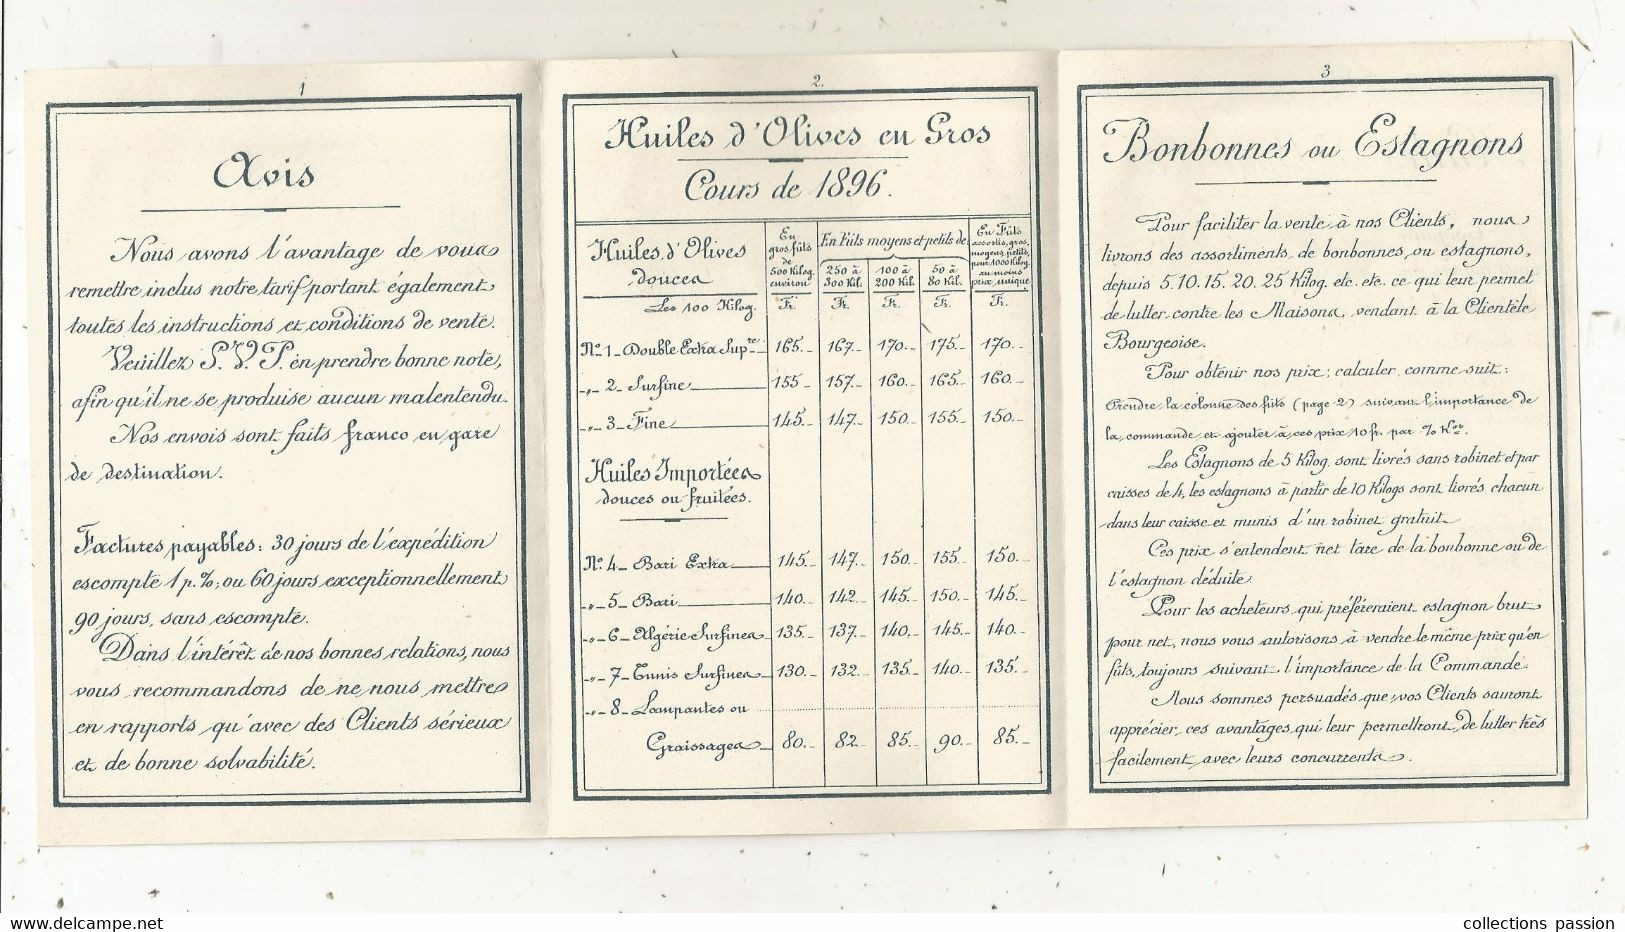 1
Avis
Nous avons l'avantage de vous
remettre inclus notre tarif portant également
toutes les instructions et conditions de vente.
Veuillez S.V.P. en prendre bonne note,
afin qu'il ne se produise aucun malentendu.
Nos envois sont faits franco en gare
de destination.
Factures payables: 30 jours de l'expédition
escompte 1 p.%; ou 60 jours exceptionnellement
90 jours, sans escompte.
Dans l'intérêt de nos bonnes relations, nous
vous recommandons de ne nous mettre
en rapports qu'avec des Clients sérieux
et de bonne solvabilité.
2.
Huiles d'Olives en Gros
Cours de 1896.
Huiles d'Olives
douces
Les 100 Kilog.
En
gros fûts
de
500 Kilog.
environ
Fr.
En Fûts moyens et petits de:
250 à
300 Kil.
Fr.
100 à
200 Kil.
Fr.
50 à
80 Kil.
Fr.
En Fûts
assortis, gros,
moyens, petits,
pour 1000 Kilog.
au moins
prix unique
Fr.
No. 1 - Double Extra Supre 165.- 167.- 170.- 175.- 170.-
-„- 2 - Surfine 155.- 157.- 160.- 165.- 160.-
-„- 3 - Fine 145.- 147.- 150.- 155.- 150.-
Huiles Importées
douces ou fruitées.
No. 4 - Bari Extra 145.- 147.- 150.- 155.- 150.-
-„- 5 - Bari 140.- 142.- 145.- 150.- 145.-
-„- 6 - Algérie Surfines 135.- 137.- 140.- 145.- 140.-
-„- 7 - Tunis Surfines 130.- 132.- 135.- 140.- 135.-
-„- 8 - Lampantes ou
Graissages 80.- 82.- 85.- 90.- 85.-
3
Bonbonnes ou Estagnons
Pour faciliter la vente à nos Clients, nous
livrons des assortiments de bonbonnes, ou estagnons,
depuis 5. 10. 15. 20. 25 Kilog. etc. etc. ce qui leur permet
de lutter contre les Maisons, vendant à la Clientèle
Bourgeoise.
Pour obtenir nos prix; calculer comme suit:
Prendre la colonne des fûts (page 2) suivant l'importance de
la commande et ajouter à ces prix 10 fr. par % Kos.
Les Estagnons de 5 Kilog. sont livrés sans robinet et par
caisses de 4, les estagnons à partir de 10 Kilogs sont livrés chacun
dans leur caisse et munis d'un robinet gratuit.
Ces prix s'entendent net tare de la bonbonne ou de
l'estagnon déduite.
Pour les acheteurs qui préféreraient estagnon brut
pour net, nous vous autorisons à vendre le même prix qu'en
fûts, toujours suivant l'importance de la Commande.
Nous sommes persuadés que vos Clients sauront
apprécier ces avantages qui leur permettront de lutter très
facilement avec leurs concurrents.
collections passion